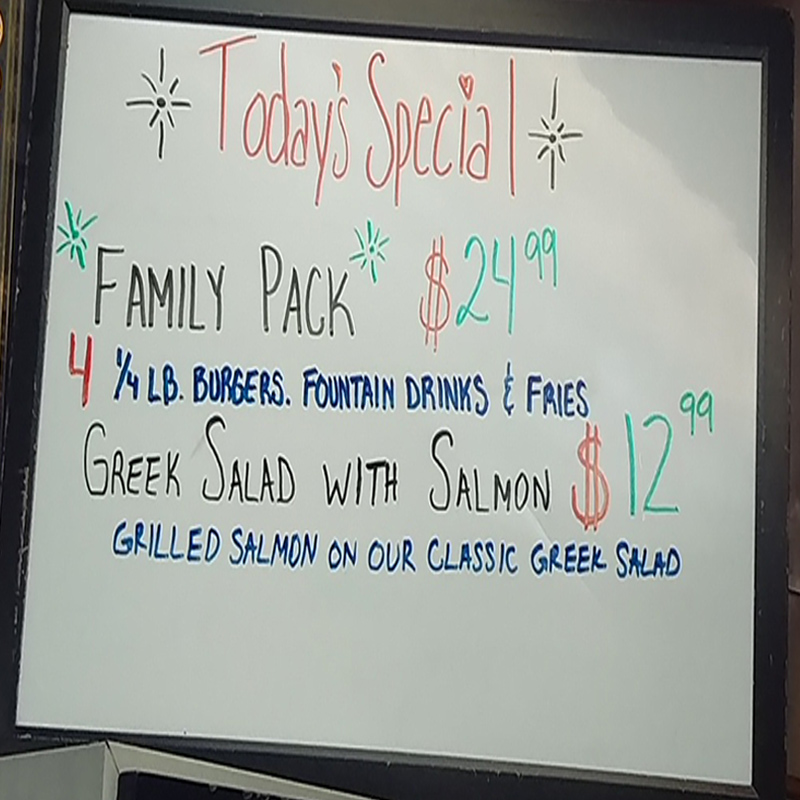 Today's Special
FAMILY PACK $24.99
4 1/4 LB. BURGERS. FOUNTAIN DRINKS & FRIES
GREEK SALAD WITH SALMON $12.99
GRILLED SALMON ON OUR CLASSIC GREEK SALAD